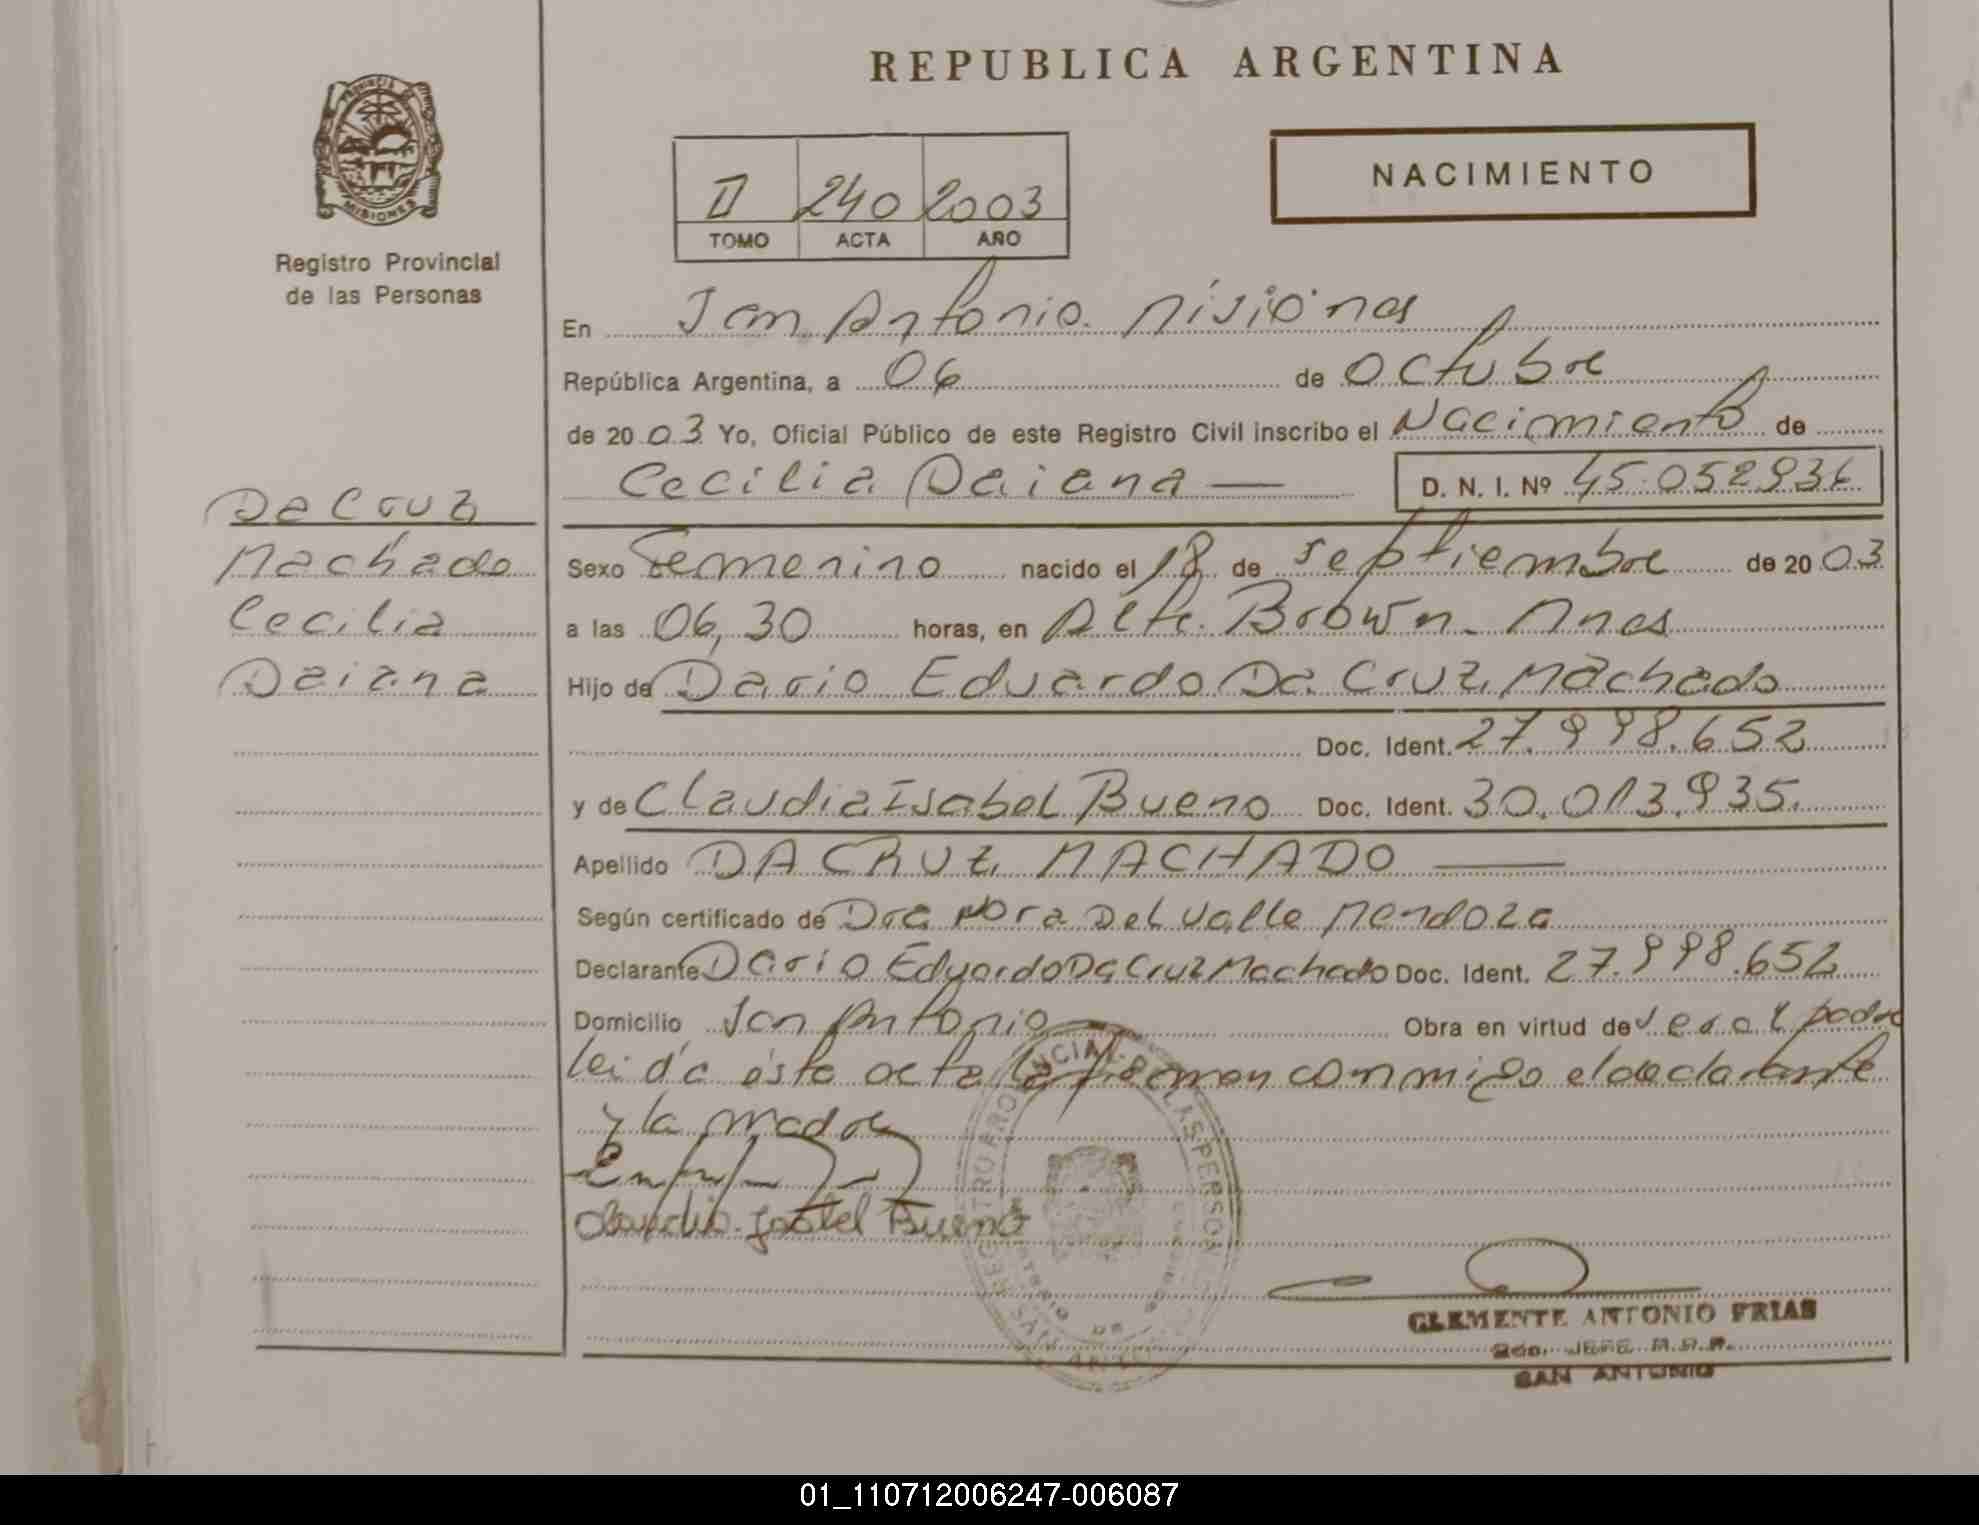 REPUBLICA ARGENTINA
PROVINCIA DE
MISIONES
Registro Provincial
de las Personas
NACIMIENTO
II 240 2003
TOMO ACTA AÑO
En San Antonio. Misiones
República Argentina, a 06 de Octubre
de 2003 Yo, Oficial Público de este Registro Civil inscribo el Nacimiento de
Cecilia Daiana — D. N. I. Nº 45.052.936
Da Cruz
Machado
Cecilia
Daiana
Sexo Femenino nacido el 18 de septiembre de 2003
a las 06,30 horas, en Alte. Brown. Mnes
Hijo de Dario Eduardo Da Cruz Machado
Doc. Ident. 27.998.652
y de Claudia Isabel Bueno Doc. Ident. 30.013.935.
Apellido DA CRUZ MACHADO —
Según certificado de Dra Nora Del Valle Mendoza
Declarante Dario Eduardo Da Cruz Machado Doc. Ident. 27.998.652
Domicilio San Antonio Obra en virtud de ser el padre
leída ésta acta la firman conmigo el declarante
y la madre
Claudia Isabel Bueno
CLEMENTE ANTONIO FRIAS
2do. JEFE R.P.P.
SAN ANTONIO
01_110712006247-006087